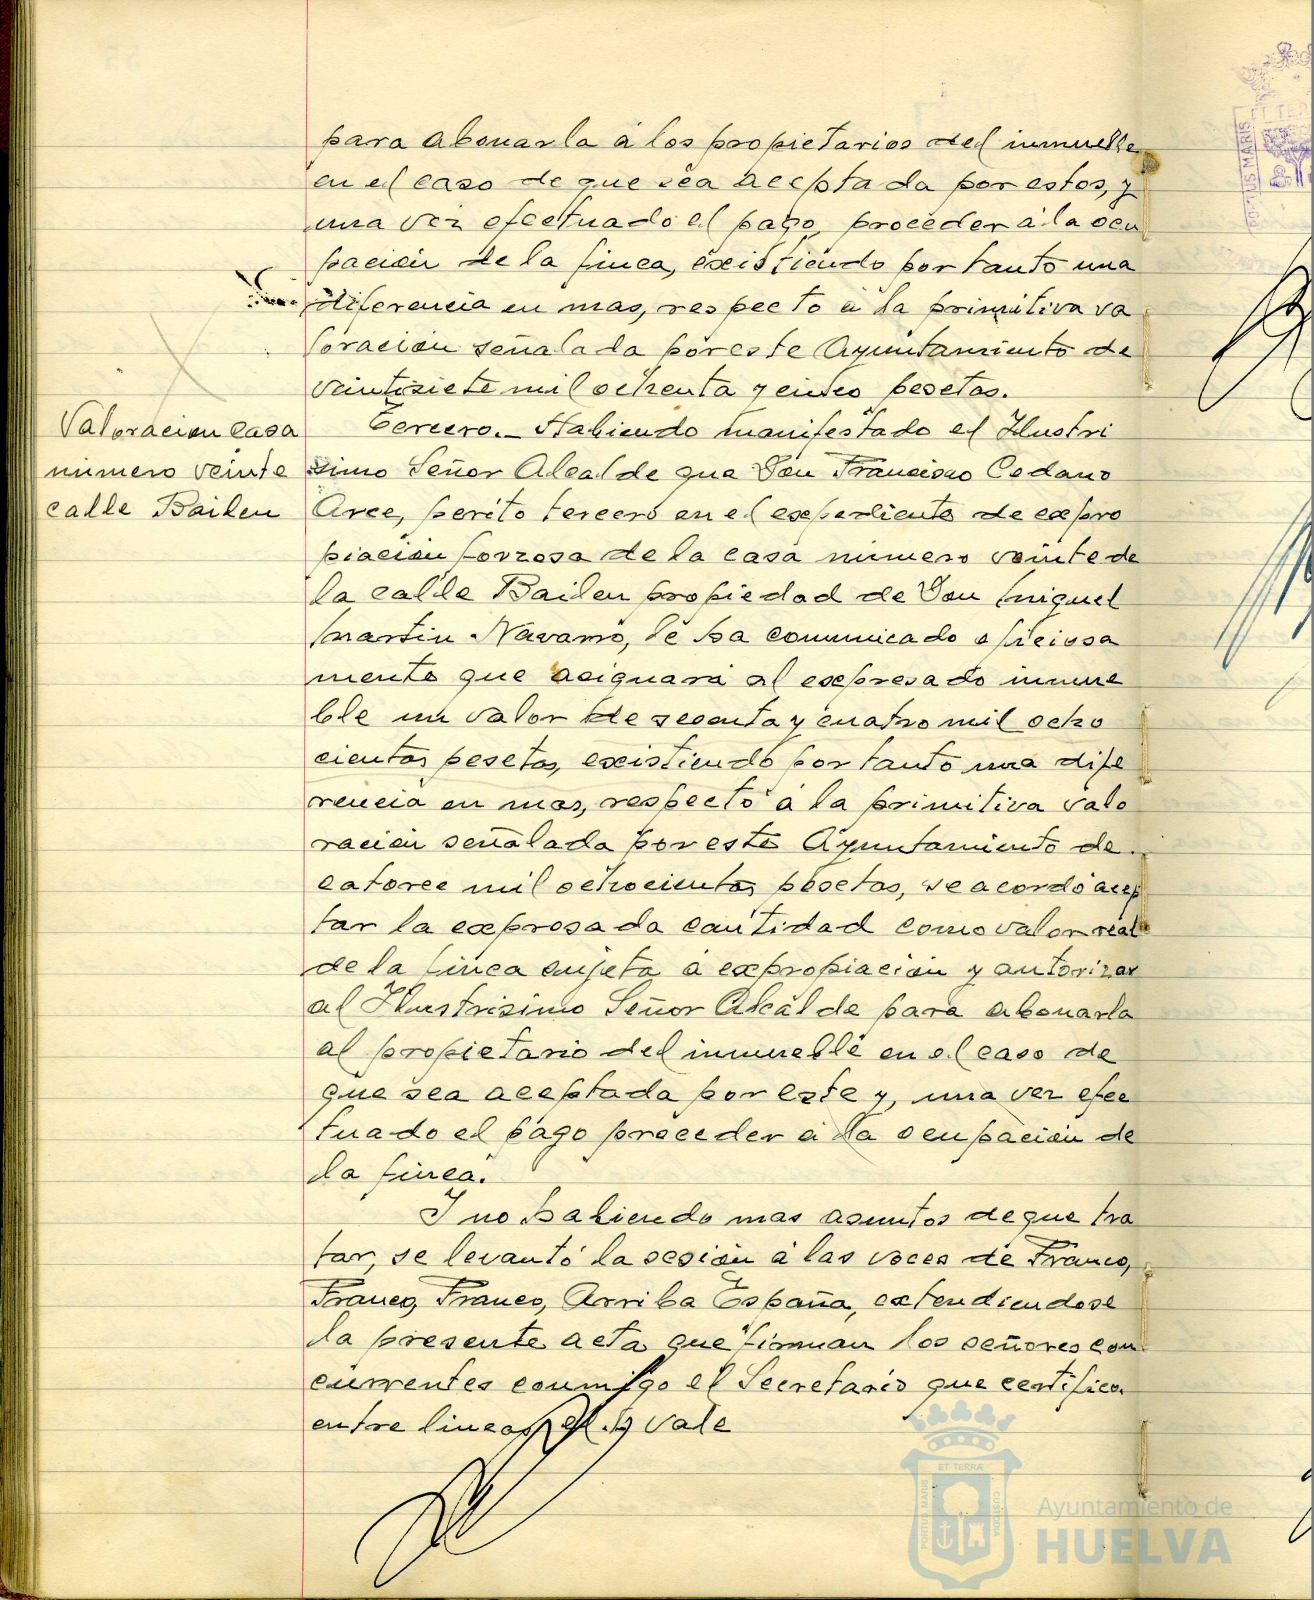 para abonarla á los propietarios del inmueble
en el caso de que sea aceptada por estos, y
una vez efectuado el pago, proceder á la ocu
pación de la finca, existiendo por tanto una
diferencia en mas, respecto á la primitiva va
loración señalada por este Ayuntamiento de
veintisiete mil ochenta y cinco pesetas.
Valoracion casa
numero veinte
calle Bailen
Tercero.- Habiendo manifestado el Ilustri
simo Señor Alcalde que Don Francisco Cedano
Arce, perito tercero en el expediente de expro
piación forzosa de la casa numero veinte de
la calle Bailen propiedad de Don Miguel
Martin Navarro, le ha comunicado oficiosa
mente que asignará al expresado inmue
ble un valor de sesenta y cuatro mil ocho
cientas pesetas, existiendo por tanto una dife
rencia en mas, respecto á la primitiva valo
ración señalada por este Ayuntamiento de
catorce mil ochocientas pesetas, se acordó acep
tar la expresada cantidad como valor real
de la finca sujeta á expropiación y autorizar
al Ilustrisimo Señor Alcalde para abonarla
al propietario del inmueble en el caso de
que sea aceptada por este y, una vez efec
tuado el pago proceder á la ocupación de
la finca.
Y no habiendo mas asuntos de que tra
tar, se levantó la sesión á las voces de Franco,
Franco, Franco, Arriba España, extendiendose
la presente acta que firman los señores con
currentes conmigo el Secretario que certifico.
entre lineas vale
PORTUS MARIS
ET TERRÆ
PORTUS MARIS
CUSTODIA
Ayuntamiento de
HUELVA